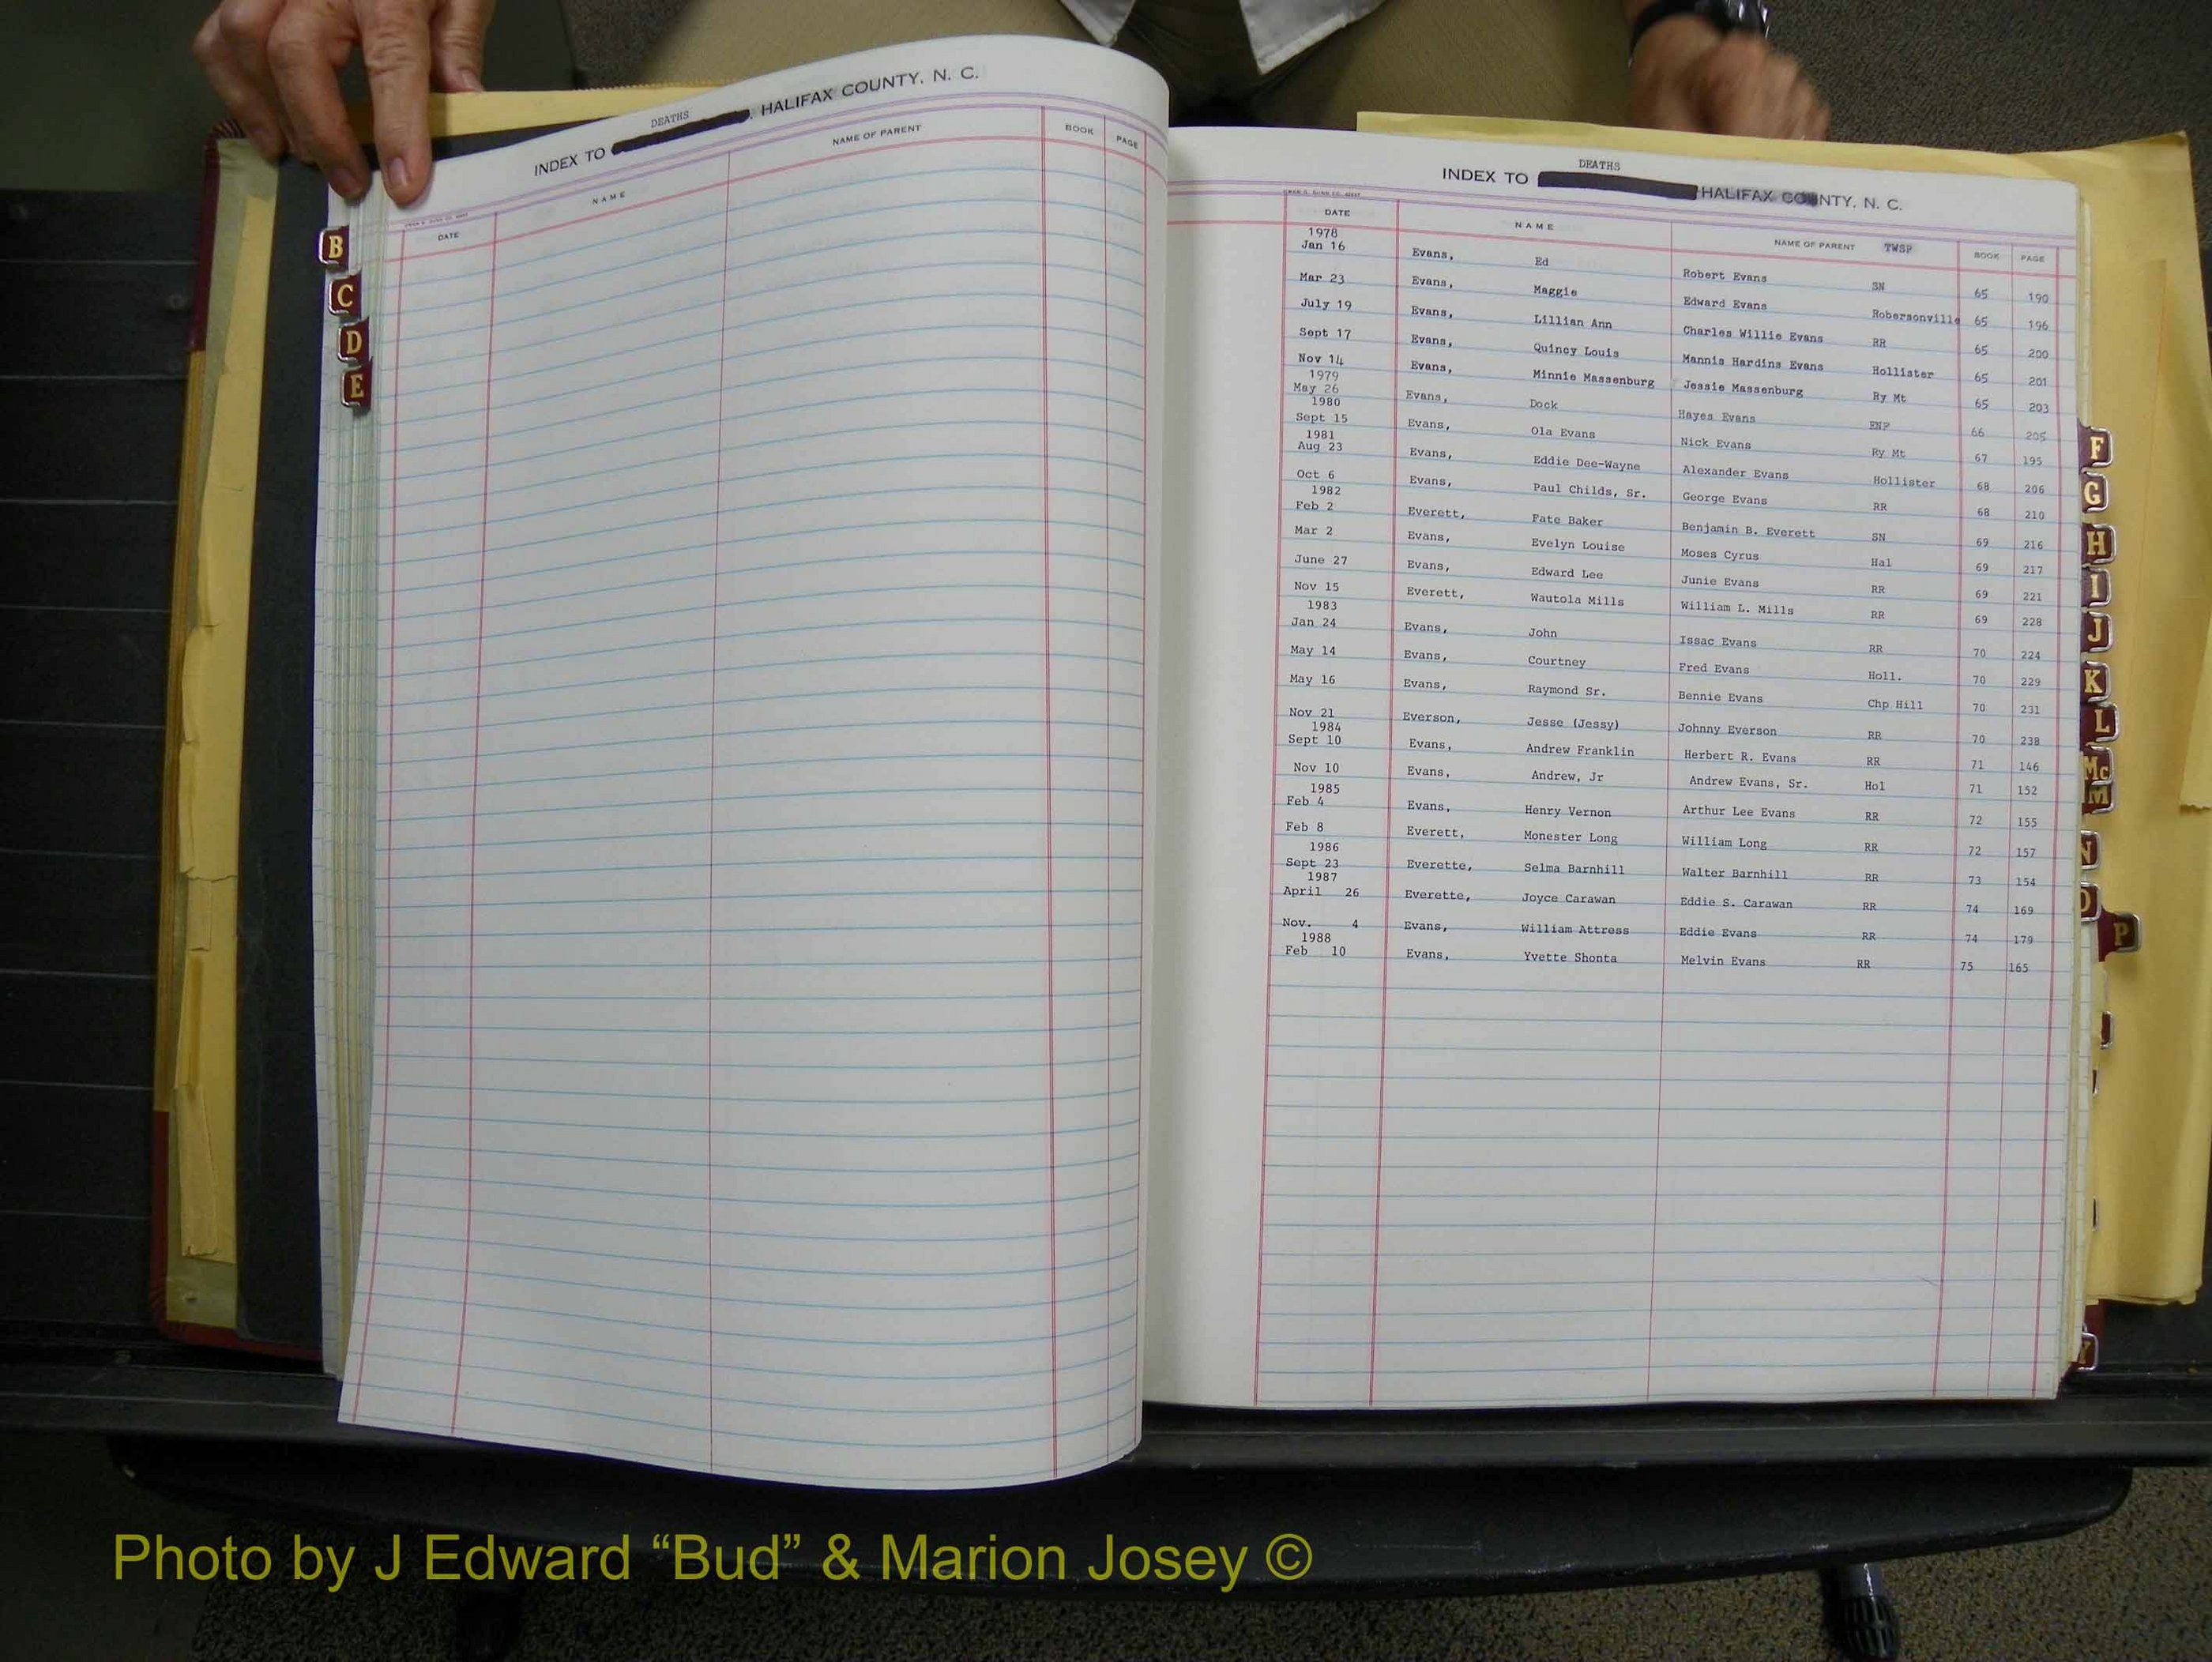 DEATHS
INDEX TO , HALIFAX COUNTY, N. C.
DATE NAME NAME OF PARENT BOOK PAGE
B
C
D
E
DEATHS
INDEX TO HALIFAX COUNTY, N. C.
DATE NAME NAME OF PARENT TWSP BOOK PAGE
1978
Jan 16 Evans, Ed Robert Evans SN 65 190
Mar 23 Evans, Maggie Edward Evans Robersonville 65 196
July 19 Evans, Lillian Ann Charles Willie Evans RR 65 200
Sept 17 Evans, Quincy Louis Mannis Hardins Evans Hollister 65 201
Nov 14 Evans, Minnie Massenburg Jessie Massenburg Ry Mt 65 203
1979
May 26 Evans, Dock Hayes Evans ENF 66 205
1980
Sept 15 Evans, Ola Evans Nick Evans Ry Mt 67 195
1981
Aug 23 Evans, Eddie Dee-Wayne Alexander Evans Hollister 68 206
Oct 6 Evans, Paul Childs, Sr. George Evans RR 68 210
1982
Feb 2 Everett, Fate Baker Benjamin B. Everett SN 69 216
Mar 2 Evans, Evelyn Louise Moses Cyrus Hal 69 217
June 27 Evans, Edward Lee Junie Evans RR 69 221
Nov 15 Everett, Wautola Mills William L. Mills RR 69 228
1983
Jan 24 Evans, John Issac Evans RR 70 224
May 14 Evans, Courtney Fred Evans Holl. 70 229
May 16 Evans, Raymond Sr. Bennie Evans Chp Hill 70 231
Nov 21 Everson, Jesse (Jessy) Johnny Everson RR 70 238
1984
Sept 10 Evans, Andrew Franklin Herbert R. Evans RR 71 146
Nov 10 Evans, Andrew, Jr Andrew Evans, Sr. Hol 71 152
1985
Feb 4 Evans, Henry Vernon Arthur Lee Evans RR 72 155
Feb 8 Everett, Monester Long William Long RR 72 157
1986
Sept 23 Everette, Selma Barnhill Walter Barnhill RR 73 154
1987
April 26 Everette, Joyce Carawan Eddie S. Carawan RR 74 169
Nov. 4 Evans, William Attress Eddie Evans RR 74 179
1988
Feb 10 Evans, Yvette Shonta Melvin Evans RR 75 165
F
G
H
I
J
K
L
Mc
M
N
O
P
Y
Photo by J Edward “Bud” & Marion Josey ©